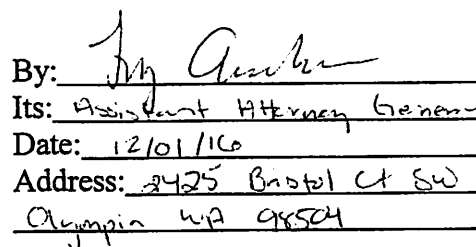 By:
Its: Assistant Attorney General
Date: 12/01/16
Address: 2425 Bristol Ct SW
Olympia WA 98504